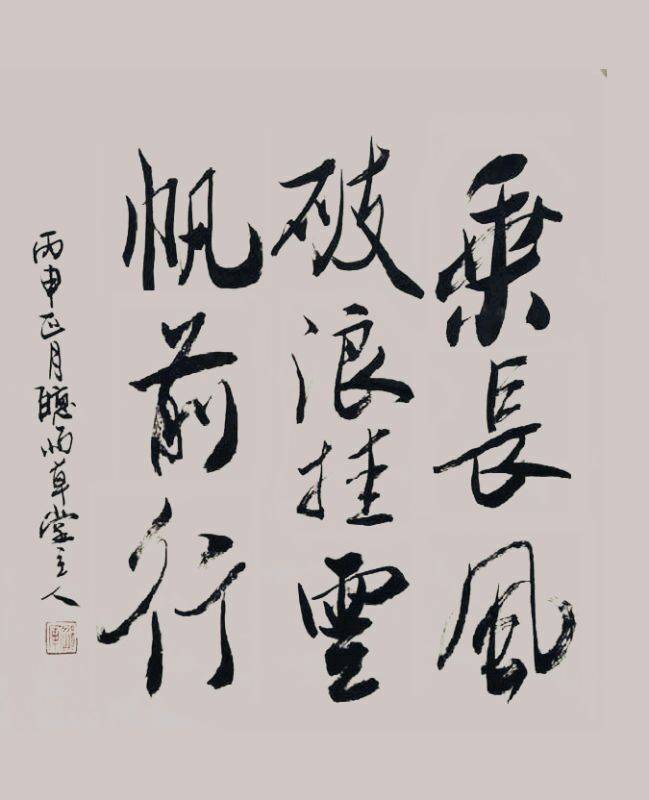 乘長風
破浪挂雲
帆前行
丙申正月聽雨草堂主人